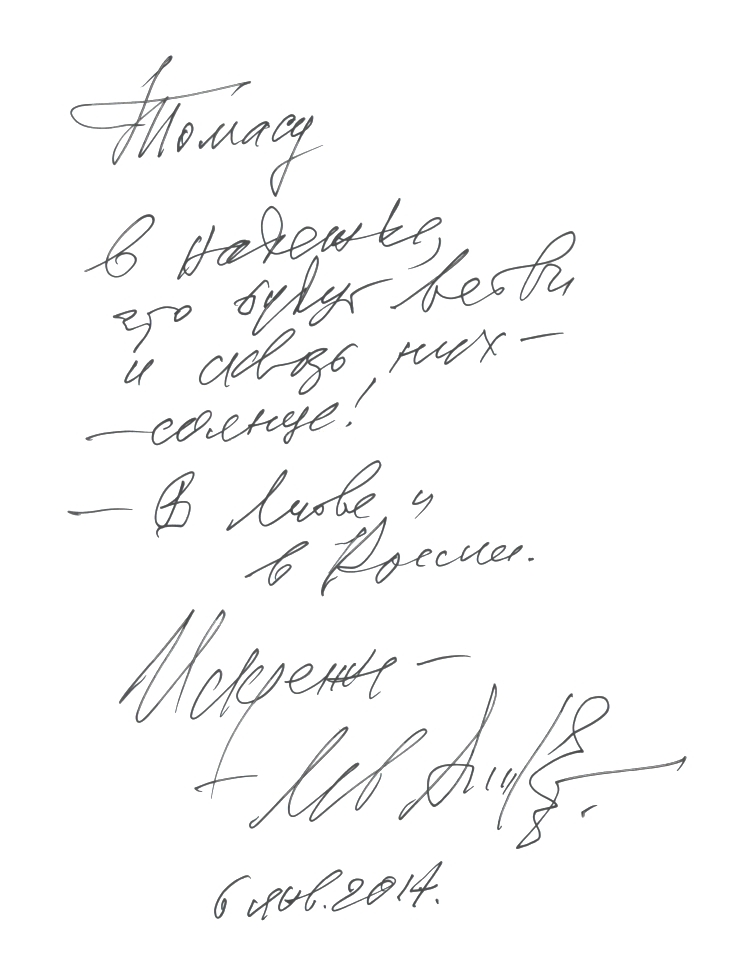 Томасу
в надежде,
что будут ветви
и сквозь них —
— солнце!
— В Литве и
в России.
Искренне —
— Лев
6 янв. 2014.